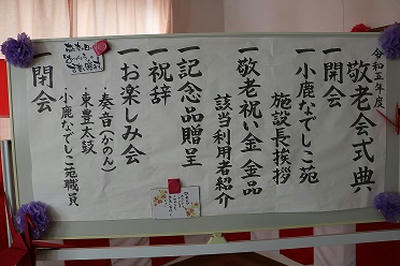 令和五年度
敬老会式典
一開会
一小鹿なでしこ苑
施設長挨拶
一敬老祝い金 金品
該当利用者紹介
一記念品贈呈
一祝辞
一お楽しみ会
・奏音(かのん)
・東豊太鼓
・小鹿なでしこ苑職員
一閉会